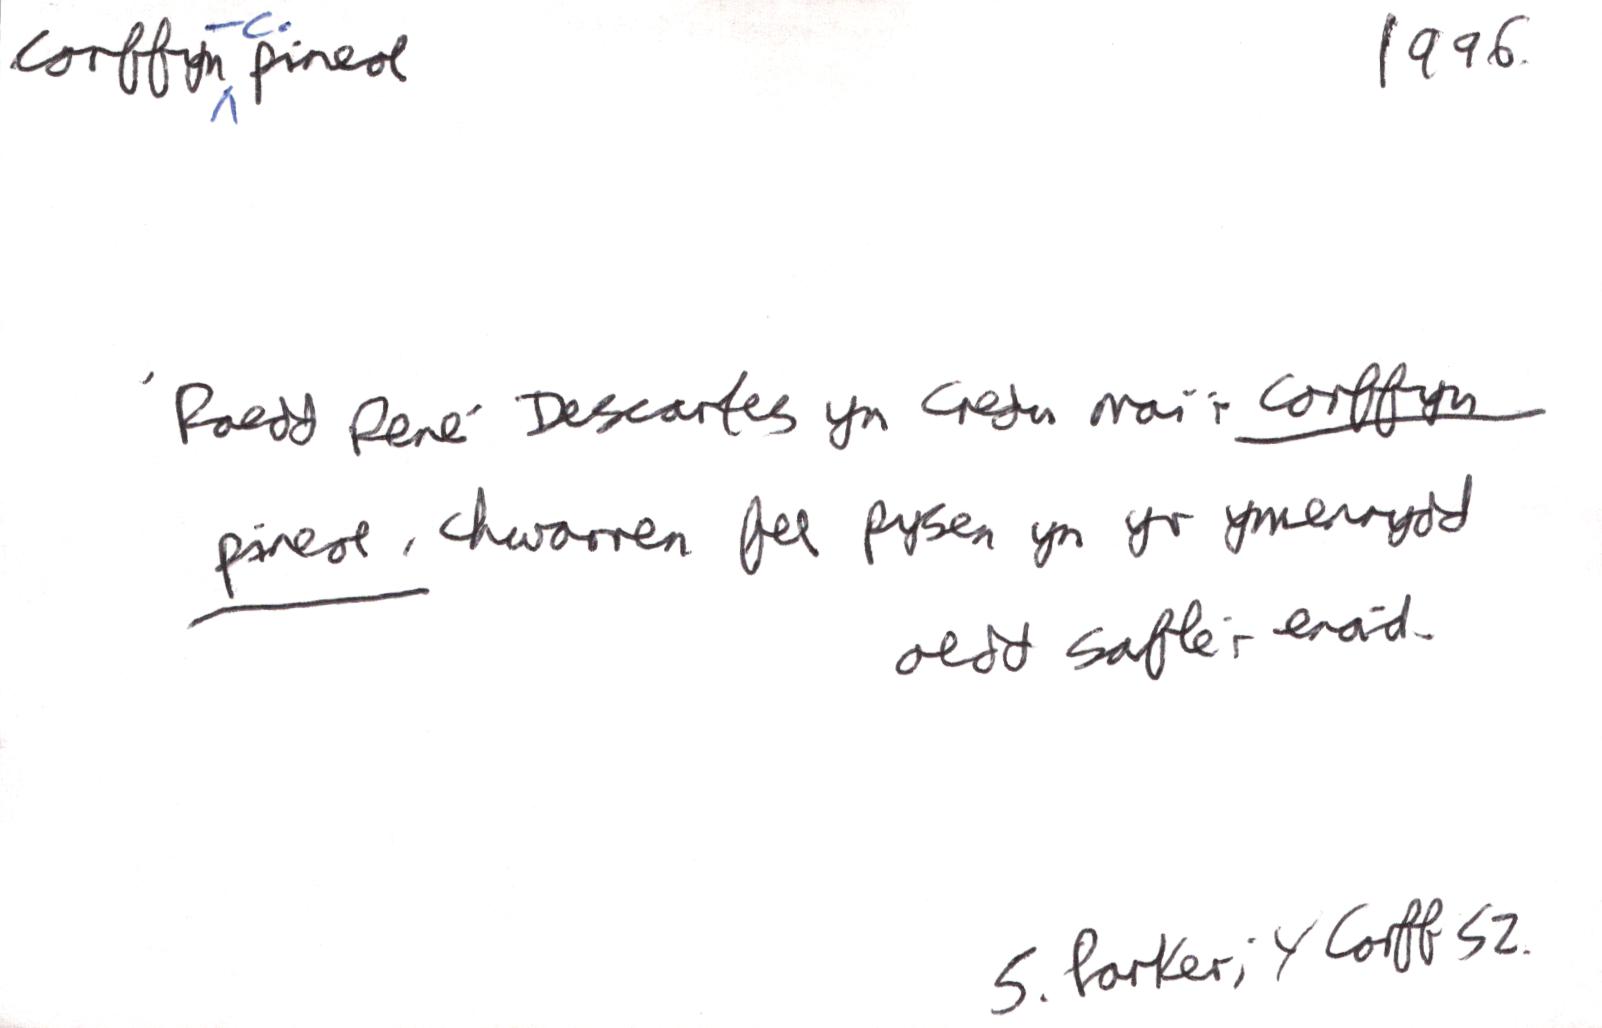 corffyn -c. pineol 1996.
'Roedd René Descartes yn credu mai'r corffyn
pineol, chwarren fel pysen yn yr ymennydd
oedd safle'r enaid.
S. Parker; Y Corff 52.